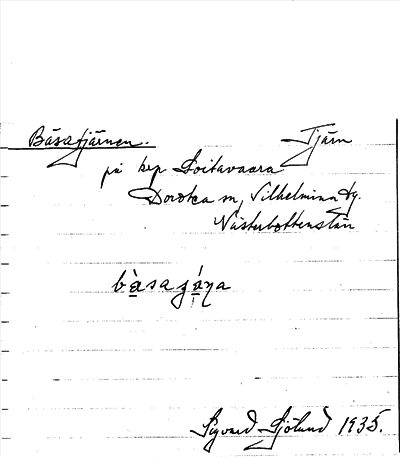 Båsatjärnen. Tjärn
på krp Soitavaara
Dorotea sn, Vilhelmina tg.
Västerbottenslän
bàsajáŋa
Sigvard Sjölund 1935.